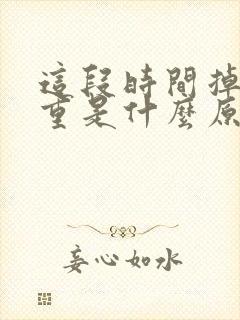 這段時間掉
重是什麼原
妄心如水